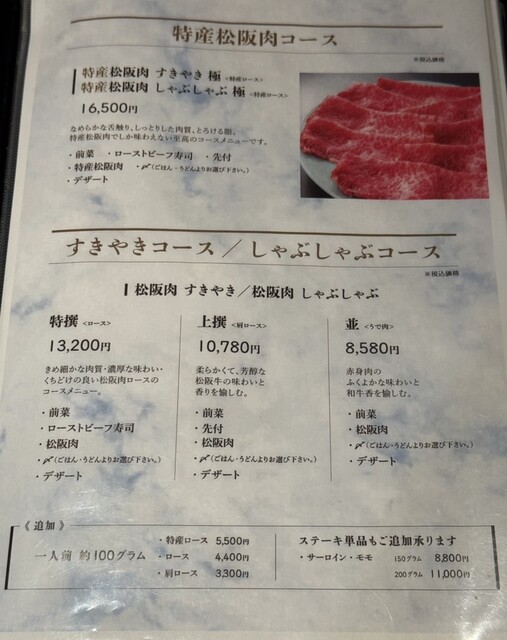 特産松阪肉コース
※税込価格
特産松阪肉 すきやき 極 <特産ロース>
特産松阪肉 しゃぶしゃぶ 極 <特産ロース>
16,500円
なめらかな舌触り、しっとりした肉質、とろける脂。
特産松阪肉でしか味わえない至高のコースメニューです。
・前菜 ・ローストビーフ寿司 ・先付
・特産松阪肉 ・〆(ごはん・うどんよりお選び下さい。)
・デザート
すきやきコース／しゃぶしゃぶコース
※税込価格
松阪肉 すきやき／松阪肉 しゃぶしゃぶ
特撰 <ロース>
13,200円
きめ細かな肉質・濃厚な味わい・
くちどけの良い松阪肉ロースの
コースメニュー。
・前菜
・ローストビーフ寿司
・松阪肉
・〆(ごはん・うどんよりお選び下さい。)
・デザート
上撰 <肩ロース>
10,780円
柔らかくて、芳醇な
松阪牛の味わいと
香りを愉しむ。
・前菜
・先付
・松阪肉
・〆(ごはん・うどんよりお選び下さい。)
・デザート
並 <うで肉>
8,580円
赤身肉の
ふくよかな味わいと
和牛香を愉しむ。
・前菜
・松阪肉
・〆(ごはん・うどんよりお選び下さい。)
・デザート
《 追加 》
一人前 約100グラム
・特産ロース 5,500円
・ロース 4,400円
・肩ロース 3,300円
ステーキ単品もご追加承ります
・サーロイン・モモ 150グラム 8,800円
200グラム 11,000円